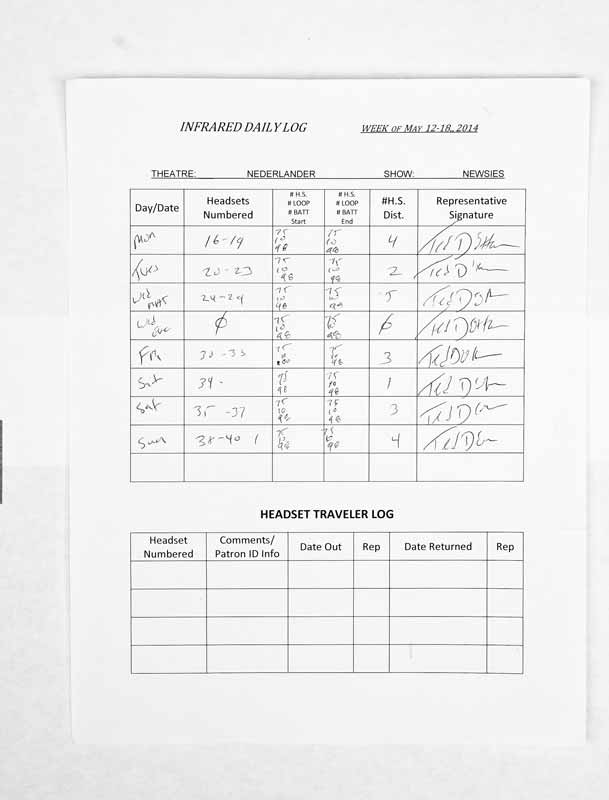 INFRARED DAILY LOG WEEK OF MAY 12-18, 2014
THEATRE: NEDERLANDER SHOW: NEWSIES
Day/Date Headsets Numbered # H.S. # LOOP # BATT Start # H.S. # LOOP # BATT End #H.S. Dist. Representative Signature
Mon 16-19 75 10 98 75 10 98 4 Ted
Tues 20-23 75 10 98 75 10 98 2 Ted
Wed Mat 24-29 75 10 98 75 98 5 Ted
Wed Eve ϕ 75 10 98 75 10 98 Ted
Fri 30-33 75 10 75 10 98 3 Ted
Sat 34- 75 98 75 10 98 1 Ted
Sat 35-37 75 10 98 75 10 98 3 Ted
Sun 38-40 1 75 10 98 75 98 4 Ted
HEADSET TRAVELER LOG
Headset Numbered Comments/ Patron ID Info Date Out Rep Date Returned Rep